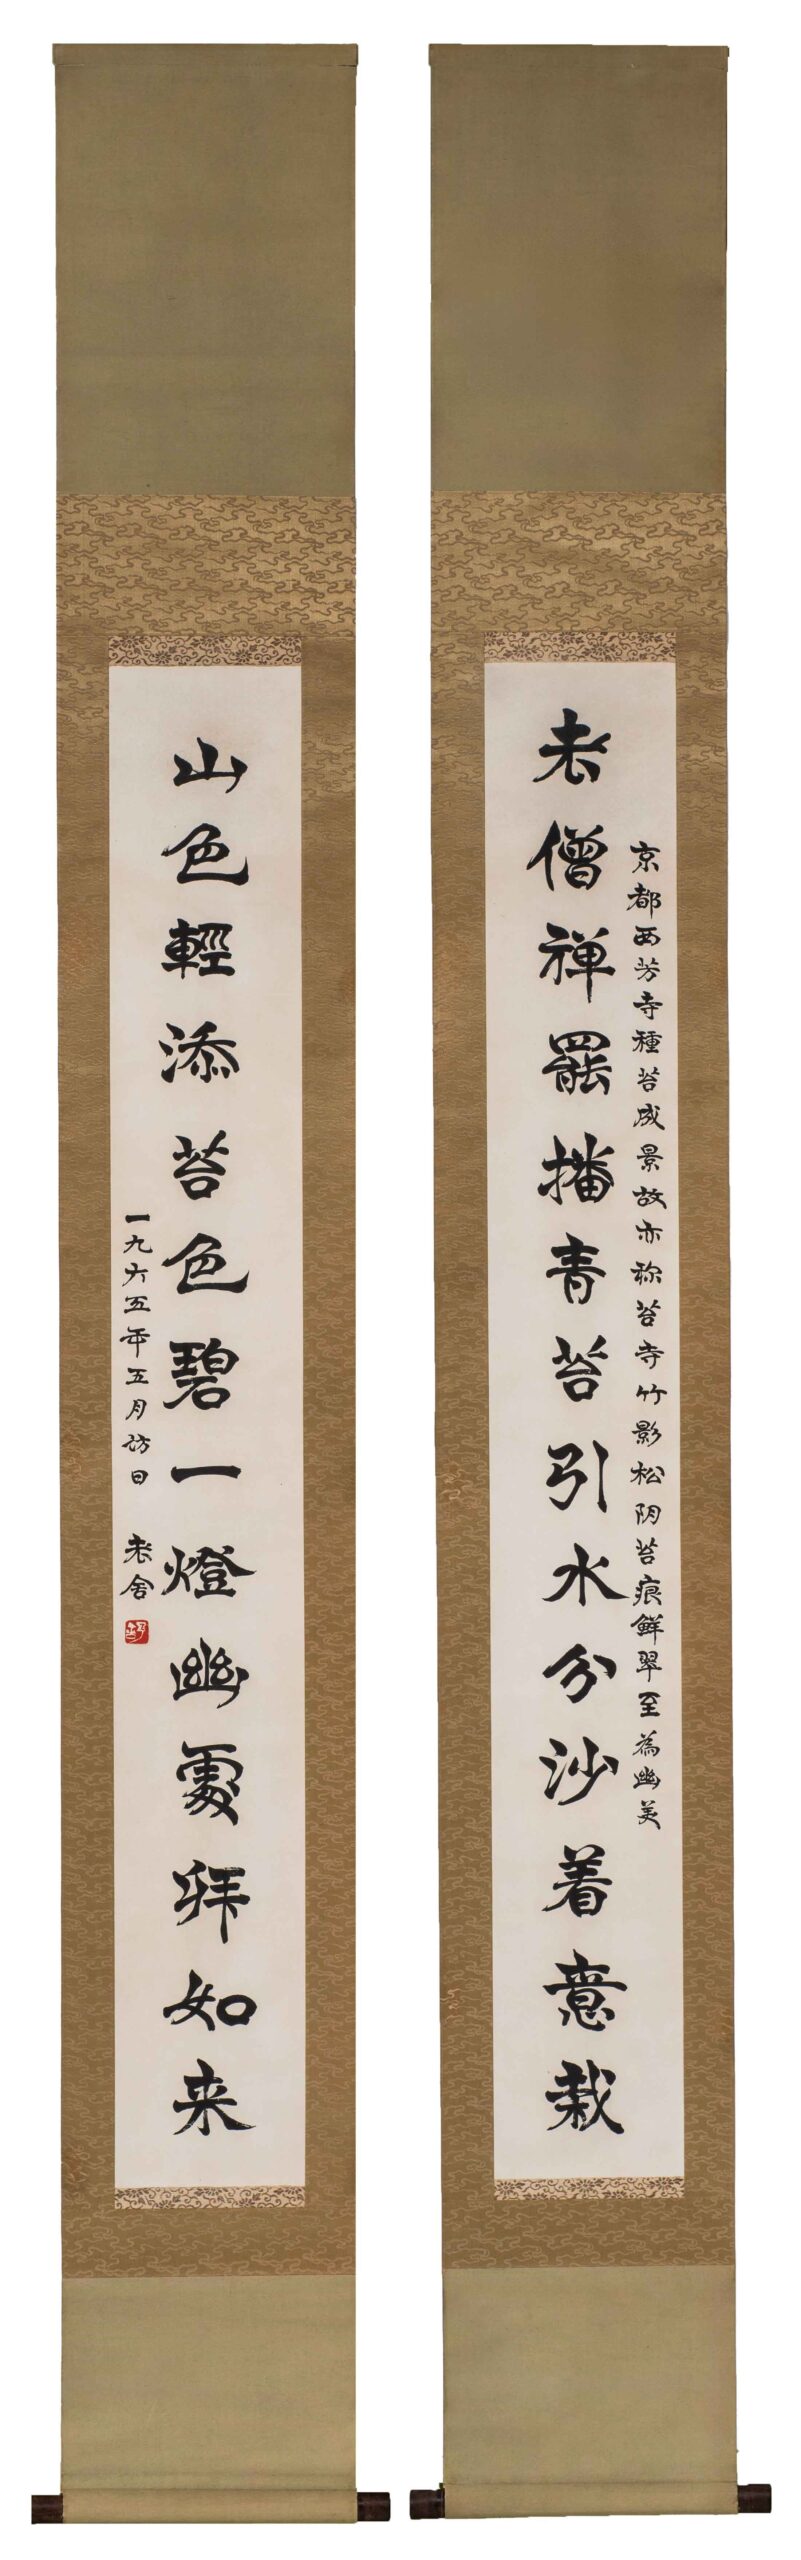 京都西芳寺種苔成景故亦称苔寺竹影松阴苔痕鲜翠至為幽美
老僧禅罷播青苔引水分沙着意栽
山色輕添苔色碧一燈幽處拜如来
一九六五年五月访日 老舍